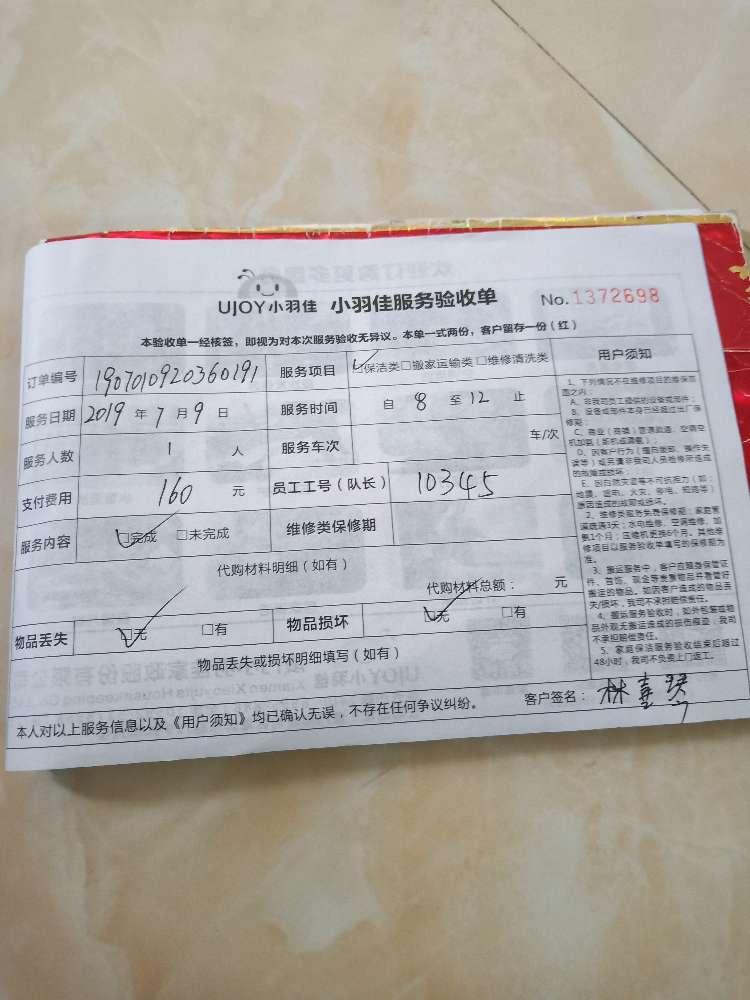 UJOY小羽佳 小羽佳服务验收单 No.1372698
本验收单一经核签，即视为对本次服务验收无异议。本单一式两份，客户留存一份（红）
订单编号 1907010920360191 服务项目 ☑保洁类□搬家运输类□维修清洗类 用户须知
服务日期 2019 年 7 月 9 日 服务时间 自 8 至 12 止
服务人数 1 人 服务车次 车/次
支付费用 160 元 员工工号（队长） 10345
服务内容 ☑完成 □未完成 维修类保修期
代购材料明细（如有）
代购材料总额： 元
物品丢失 ☑无 □有 物品损坏 ☑无 □有
物品丢失或损坏明细填写（如有）
本人对以上服务信息以及《用户须知》均已确认无误，不存在任何争议纠纷。 客户签名： 林喜
1、下列情况不在维修项目的维保范
围之内：
A、非我司员工提供的设备或部件；
B、设备或部件本身已经超过出厂保
修期；
C、商业（商铺）管道疏通、空调空
机加氨（新机或漏氨）；
D、因客户行为（擅自撤卸、操作失
误等）或另请非我司人员检修所造成
的故障或损坏；
E、因自然灾害等不可抗力（如：
地震、雷电、火灾、停电、短路等）
原因造成的故障或损坏。
2、维修类服务免费保修期：家庭管
道疏通3天；水电维修、空调维修、加
氨1个月；压缩机更换6个月。其他维
修项目以服务验收单填写的保修期为
准。
3、搬运服务中，客户应随身保管证
件、首饰、现金等贵重物品并看管好
搬运的物品。如因客户造成的物品丢
失/损坏，我司不承担赔偿责任。
4、搬运服务验收时，如外包装或物
品外观无搬运造成的损伤痕迹，我司
不承担赔偿责任。
5、家庭保洁服务验收结束后超过
48小时，我司不负责上门返工。